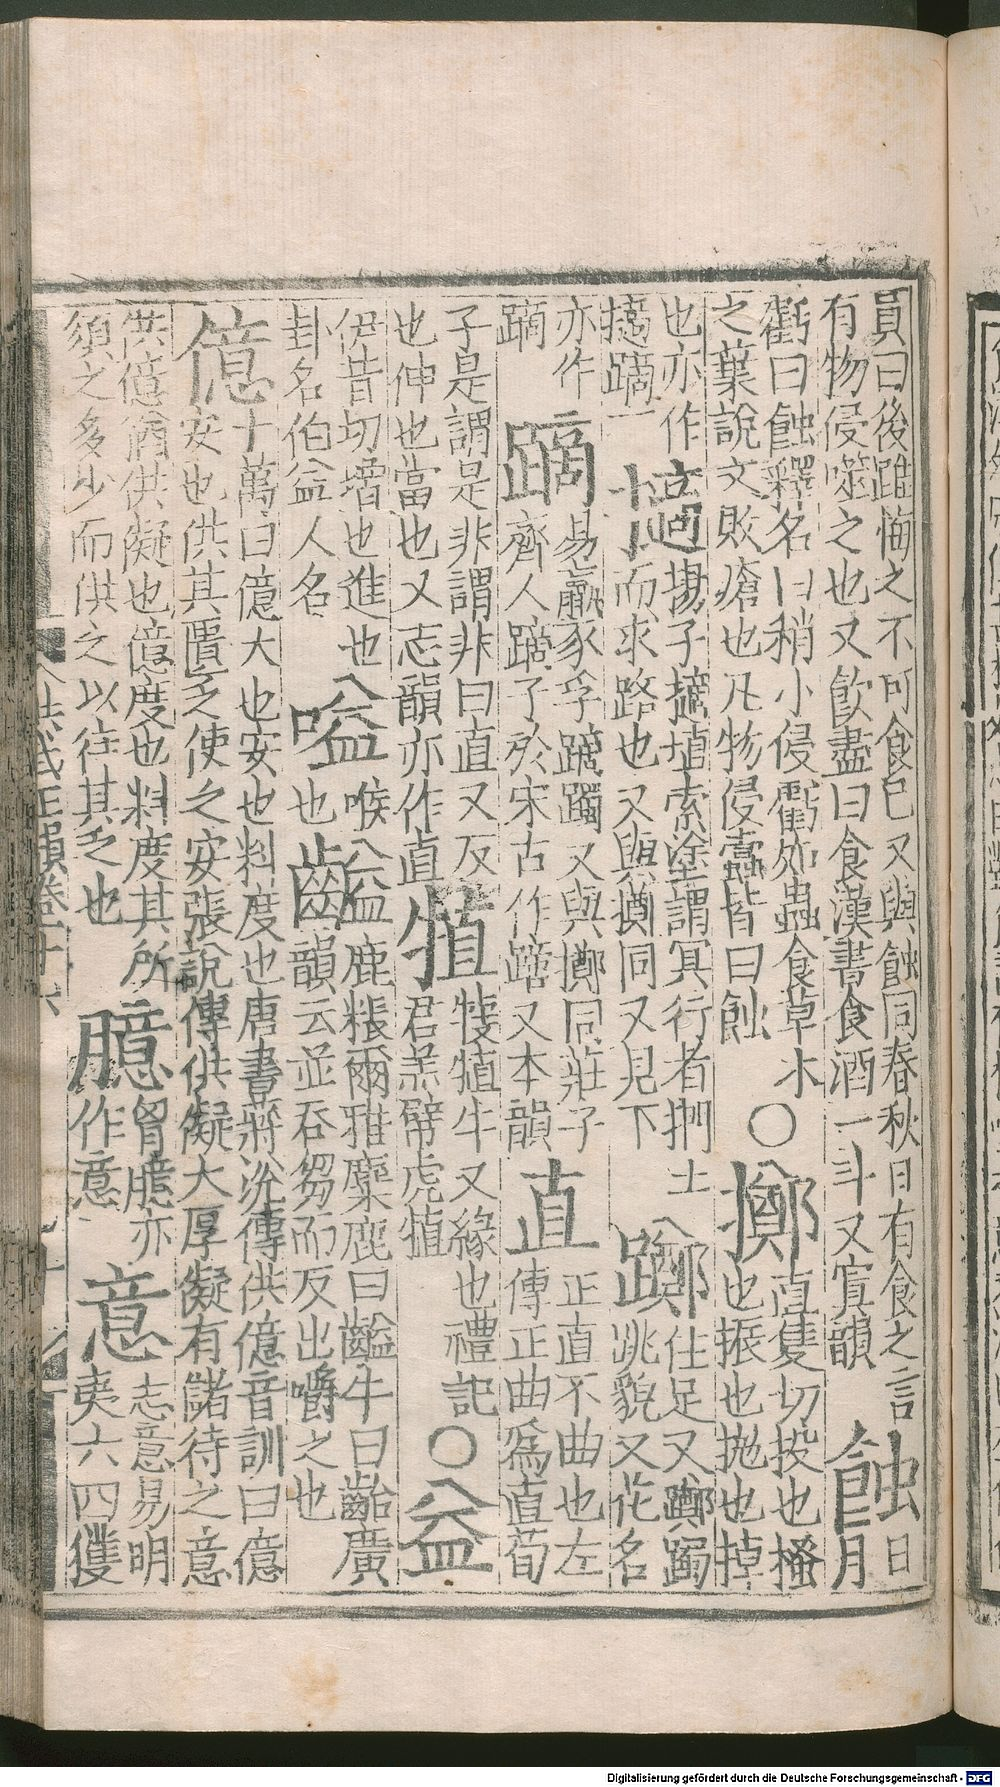 員曰後雖悔之不可食巳又與蝕同春秋日有食之言
有物侵噬之也又飲盡曰食漢書食酒一斗又寘韻
蝕
日
月
虧曰蝕釋名曰稍小侵虧如蟲食草木
之葉說文敗瘡也凡物侵蠹皆曰蝕
○擲
直隻切投也搔
也振也拋也掉
也亦作
擿
揚子擿埴索塗謂冥行者捫土
而求路也又與擲同又見下
躑
住足又躑躅
跳貌又花名
亦作
蹢
蹢
易羸豕孚蹢躅又與擲同莊子
齊人蹢子於宋古作蹢又本韻
直
正直不曲也左
傳正曲爲直荀
子是謂是非謂非曰直又反
也伸也當也又志韻亦作直
犆
犆牛又緣也禮記
君羔幦虎犆
○益
伊昔切增也進也
卦名伯益人名
嗌
喉
也
齸
鹿粻爾雅麋鹿曰齸牛曰齝廣
韻云並吞芻而反出嚼之也
億
十萬曰億大也安也料度也唐書蔣沇傳供億音訓曰億
安也供其匱乏使之安張說傳供擬大厚擬有儲待之意
供億猶供擬也億度也料度其所
須之多少而供之以往其乏也
臆
胷臆亦
作意
意
志意易明
夷六四獲
洪武正韻卷十六
Digitalisierung gefördert durch die Deutsche Forschungsgemeinschaft - DFG